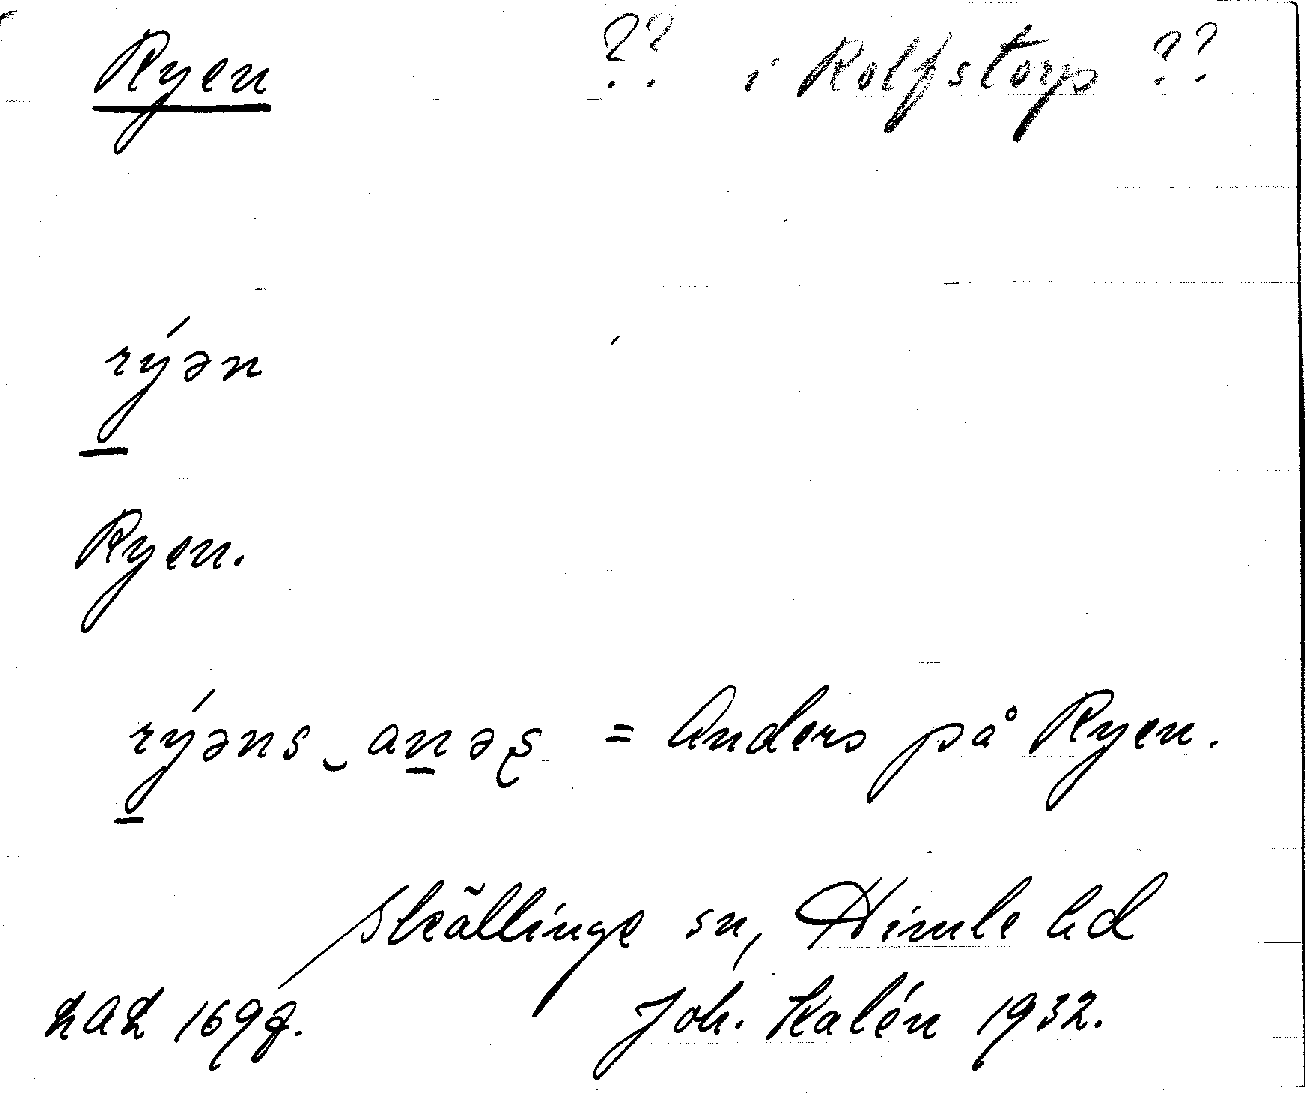 Ryen ?? i Rolfstorp ??
rýən
Ryen.
rýəns ‿ anəʂ = Anders på Ryen.
Skällinge sn, Himle hd
LAL 1697. Joh. Kalén 1932.